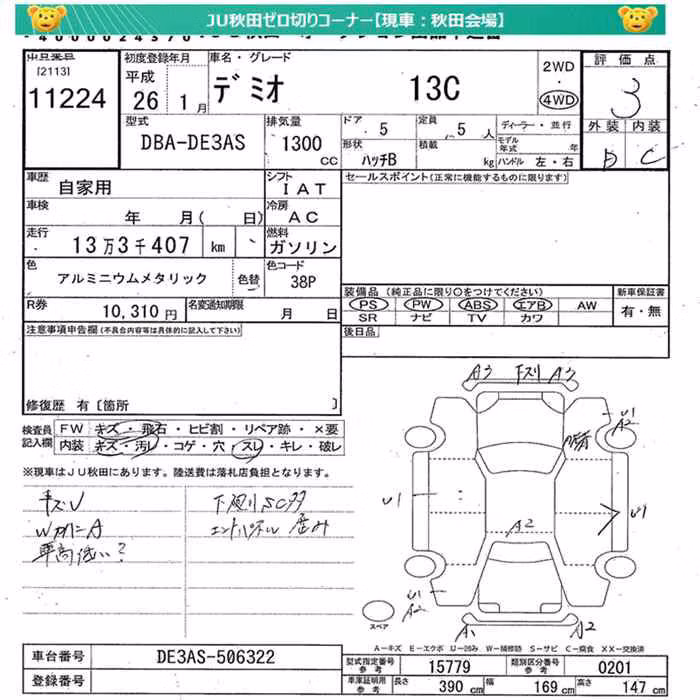 JU秋田ゼロ切りコーナー【現車:秋田会場】
[2113]
11224
初度登録年月
平成
26 1月
車名・グレード
デミオ 13C
2WD
・
4WD
評価点
3
外装 内装
C
型式
DBA-DE3AS
排気量
1300
CC
ドア 5
定員 5人
ディーラー・並行
モデル年式 年
形状 ハッチB
積載 kg
ハンドル 左・右
車歴
自家用
シフト
IAT
セールスポイント(正常に機能するものに限ります)
車検
年 月( 日)
冷房
AC
走行
13万3千407 km
燃料
ガソリン
色
アルミニウムメタリック
色替
色コード
38P
装備品(純正品に限り○をつけてください)
新車保証書
PS PW ABS エアB AW
有・無
SR ナビ TV カワ
R券
10,310円
名変通知期限
月 日
後日品
注意事項申告欄(不具合内容等は具体的に記入して下さい)
修復歴 有〔箇所 〕
検査員記入欄
FW キズ・飛石・ヒビ割・リペア跡・×要
内装 キズ・汚レ・コゲ・穴・スレ・キレ・破レ
※現車はJU秋田にあります。陸送費は落札店負担となります。
キズU
W所ニA
車高低い?
下廻りSC夕
エンドパネル 歪み
A3 下スリ A3
U1
A2
U1
U1
A2
U1
A2
A1
A2
スペア
A-キズ E-エクボ U-凹み W-補修跡 S-サビ C-腐食 XX-交換済
車台番号
DE3AS-506322
型式指定番号 参考
15779
類別区分番号 参考
0201
登録番号
車庫証明用 参考
長さ 390 cm
幅 169 cm
高さ 147 cm